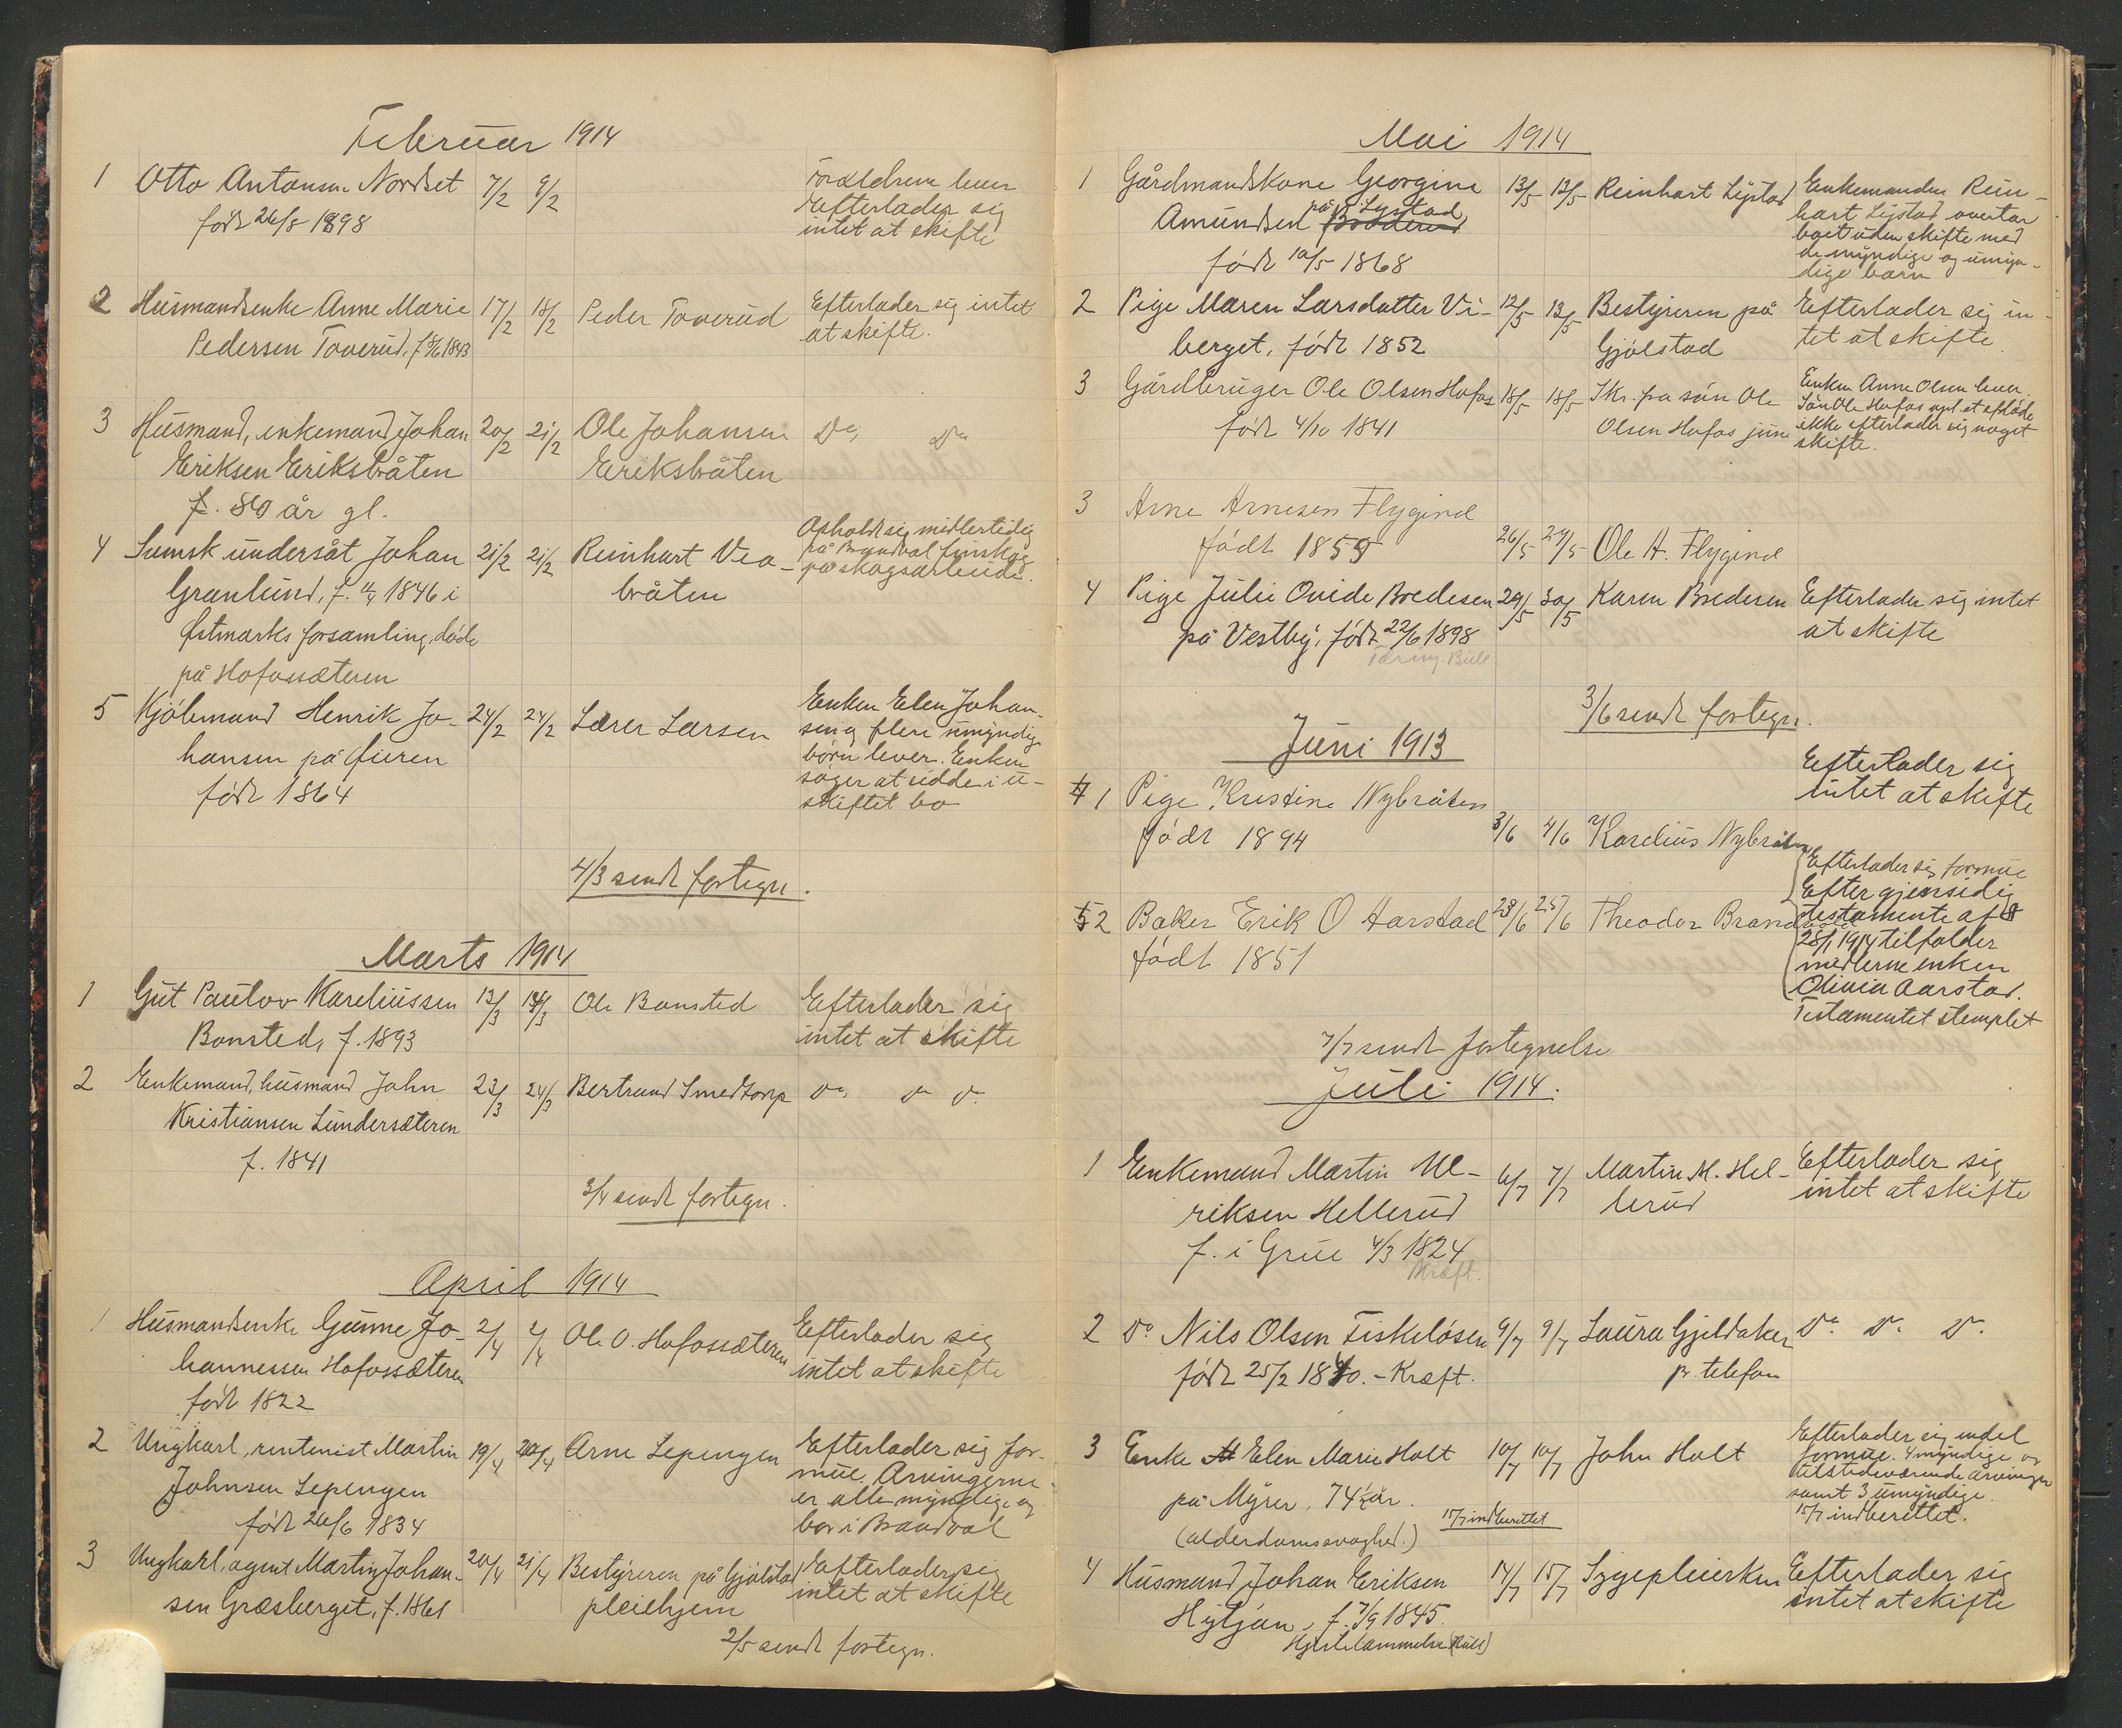 Februar 1914
1 Otto Antonsen Nordset 7/2 9/2 Forældrene lever
født 26/8 1898 Efterlader sig
intet at skifte
2 Husmandsenke Anne Marie 17/2 18/2 Peder Toverud Efterlader sig intet
Pedersen Toverud, f. 5/6 1843 at skifte.
3 Husmand, enkemand Johan 20/2 21/2 Ole Johansen Do. Do.
Eriksen Eriksbråten Eriksbråten
f. 80 år gl.
4 Svensk undersåt Johan 21/2 21/2 Reinhart Vea- Opholdt sig midlertidig
på Brandval Finskog
på skogsarbeide.
Granlund, f. 1846 i bråten
Østmarks forsamling, døde
på Hofossæteren
5 Kjøbmand Henrik Jo- 24/2 24/2 Lærer Larsen Enken Elen Johan-
sen og flere umyndig
hansen på Øieren børn lever. Enken
søger at sidde i u-
født 1864 skiftet bo
4/3 sendt fortegn.
Marts 1914
1 Gut Paulov Kareliussen 13/3 14/3 Ole Bonsted Efterlader sig
Bonsted, f. 1893 intet at skifte
2 Enkemand, husmand John 23/3 24/3 Bertrand Smedtorp Do. Do. Do.
Kristiansen Lundersæteren
f. 1841
3/4 sendt fortegn.
April 1914
1 Husmandsenke Gunne Jo- 2/4 2/4 Ole O. Hofossæteren Efterlader sig
hannessen Hofossæteren intet at skifte
født 1822
2 Ungkarl, rentenist Martin 19/4 20/4 Arne Lepengen Efterlader sig for-
mue. Arvingerne
Johnsen Lepengen er alle myndige og
født 26/6 1834 bor i Brandval
3 Ungkarl, agent Martin Johan- 20/4 21/4 Bestyreren på Gjølstad Efterlader sig
sen Græsberget, f. 1861 pleiehjem intet at skifte
2/5 sendt fortegn.
Mai 1914
1 Gårdmandskone Georgine 13/5 13/5 Reinhart Lystad Enkemanden Rein-
på Lystad hart Lystad overtar
Amundsen boet uden skifte med
de myndige og umyn-
født 10/5 1868 dige barn
2 Pige Maren Larsdatter Vi- 12/5 13/5 Bestyreren på Efterlader sig in-
berget, født 1852 Gjølstad tet at skifte
3 Gårdbruger Ole Olsen Hofos 18/5 18/5 Skr. fra søn Ole Enken Anne Olsen lever
Søn Ole Hofos opl. at afdøde
født 4/10 1841 Olsen Hofos jun. ikke efterlader sig noget
skifte.
3 Arne Arnesen Flygind
født 1855 26/5 27/5 Ole A. Flygind
4 Pige Julie Ovide Bredesen 29/5 30/5 Karen Bredesen Efterlader sig intet
på Vestby, født 22/6 1898 at skifte
3/6 sendt fortegn.
Juni 1913
1 Pige Kristine Nybråten Efterlader sig
intet at skifte
født 1894 3/6 4/6 Karelius Nybråten
Efterlader sig formue
Efter gjensidig
2 Baker Erik O Harstad 23/6 25/6 Theodor Brandvold testamente af
født 1851 28/1 1914 tilfalder
midlerne enken
Olivia Aarstad.
Testamentet stemplet
7/7 sendt fortegnelse
Juli 1914.
1 Enkemand Martin Ul- 6/7 7/7 Martin M. Hel- Efterlader sig
riksen Hellerud lerud intet at skifte
f. i Grue 4/3 1824
Kræft.
2 Do. Nils Olsen Fiskeløsen 9/7 9/7 Laura Gjeldaker Do. Do. Do.
født 25/2 1840. - Kræft. pr. telefon
3 Enke Elen Marie Holt 10/7 10/7 John Holt Efterlader sig endel
formue. 4 myndige og
på Myrer, 74 1/2 år. tilstedeværende arvinger
samt 3 umyndige.
15/7 indberettet 15/7 indberettet.
(alderdomssvaghed.)
4 Husmand Johan Eriksen 14/7 15/7 Sygepleiersken Efterlader sig
Hytjan, f. 7/9 1845. intet at skifte
Hjertelammelse (Bull)